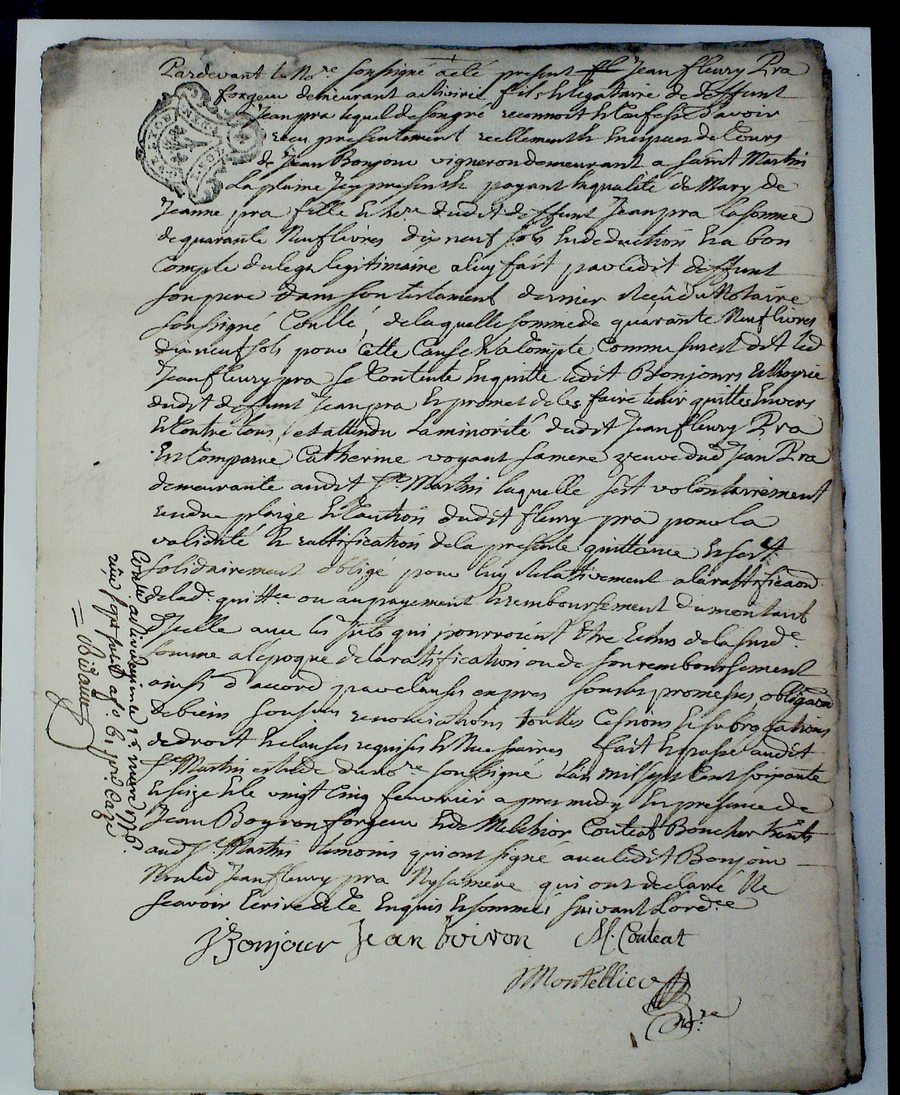 Pardevant le No.re soussigné a été present Jean fleury Pra
forgeur demeurant a fils & legataire de deffunt
Jean pra lequel de son gré reconnoit & confesse d'avoir
reçu presentement reellement & en especes de Cours
de Jean Bonjour vigneron demeurant a Saint Martin
La plaine Jcy present & payant en qualité de Mary de
Jeanne pra fille & her.e dudit deffunt Jean pra la somme
de quarante Neuf livres dix neuf sols En deduction & a bon
Compte du legs legitimaire a luy fait par ledit deffunt
son pere dans son testament dernier Receu du Notaire
soussigné Conllé, de laquelle somme de quarante Neuf livres
dix neuf sols pour cette Cause & a Compte Comme sus est dit led
Jean fleury pra se Contente en quitte ledit Bonjour & l'hoyrie
dudit deffunt Jean pra & promet de les faire tenir quittes Envers
& Contre tous, et attendu la minorité dudit Jean fleury Pra
Est Comparue Catherine voyant sa mere veuve dud. Jean Pra
demeurante audit St. Martin laquelle s'est volontairement
rendue pleige & Caution dudit fleury pra pour la
validité & rattification de la presente quittance & s'est
solidairement obligé pour luy Relativement a la rattification
de lad. quitt.ce ou au payement & remboursement du montant
D'jcelle avec les qui pourroient Etre Echus de la susd.e
somme a l'epoque de la ratification ou de son remboursement
ainsi d'accord par clauses expres sous les promesses obligaõn
de biens soumis renonciations touttes Cessions & subrogations
de droit & clauses requises & Necessaires fait & passé audit
St. Martin Estude du no.re soussigné L'an mil sept Cent soixante
& seize & le vingt Cinq feuvrier apres midy En presence de
Jean Boyron forgeur & de Melchior Couteat Boucher
aud. St. Martin temoins qui ont signé avec ledit Bonjour
Non led. Jean fleury pra Ny sa mere qui ont declaré Ne
sçavoir Ecrire de ce Enquis & sommés suivant L'ord.ce
J Bonjour Jean Boiron M. Couteat
Montellier
No.re
Conllé a le 1776